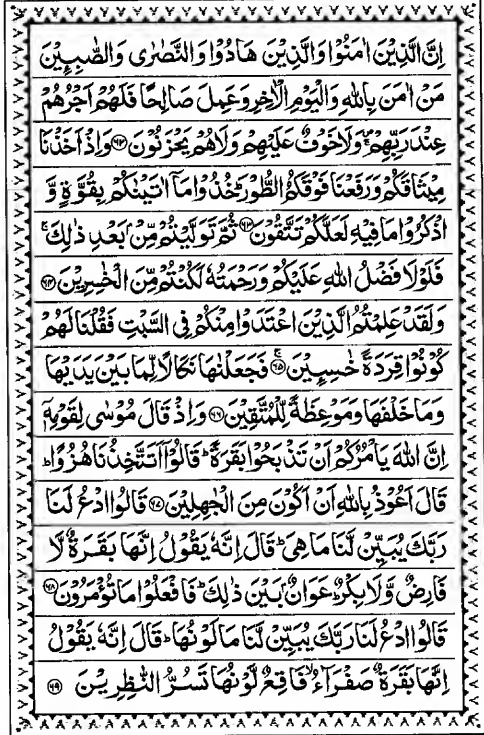 اِنَّ الَّذِيْنَ اٰمَنُوْا وَالَّذِيْنَ هَادُوْا وَالنَّصٰرٰى وَالصّٰبِـِٕيْنَ
مَنْ اٰمَنَ بِاللّٰهِ وَالْيَوْمِ الْاٰخِرِ وَعَمِلَ صَالِحًا فَلَهُمْ اَجْرُهُمْ
عِنْدَ رَبِّهِمْ ۚ وَلَا خَوْفٌ عَلَيْهِمْ وَلَا هُمْ يَحْزَنُوْنَ ﴿۶۲﴾ وَاِذْ اَخَذْنَا
مِيْثَاقَكُمْ وَرَفَعْنَا فَوْقَكُمُ الطُّوْرَ ؕ خُذُوْا مَاۤ اٰتَيْنٰكُمْ بِقُوَّةٍ وَّ
اذْكُرُوْا مَا فِيْهِ لَعَلَّكُمْ تَتَّقُوْنَ ﴿۶۳﴾ ثُمَّ تَوَلَّيْتُمْ مِّنْۢ بَعْدِ ذٰلِكَ ۚ
فَلَوْلَا فَضْلُ اللّٰهِ عَلَيْكُمْ وَرَحْمَتُهٗ لَكُنْتُمْ مِّنَ الْخٰسِرِيْنَ ﴿۶۴﴾
وَلَقَدْ عَلِمْتُمُ الَّذِيْنَ اعْتَدَوْا مِنْكُمْ فِى السَّبْتِ فَقُلْنَا لَهُمْ
كُوْنُوْا قِرَدَةً خٰسِـِٕيْنَ ﴿۶۵﴾ ۚ فَجَعَلْنٰهَا نَكَالًا لِّمَا بَيْنَ يَدَيْهَا
وَمَا خَلْفَهَا وَمَوْعِظَةً لِّلْمُتَّقِيْنَ ﴿۶۶﴾ وَاِذْ قَالَ مُوْسٰى لِقَوْمِهٖۤ
اِنَّ اللّٰهَ يَاْمُرُكُمْ اَنْ تَذْبَحُوْا بَقَرَةً ؕ قَالُوْۤا اَتَتَّخِذُنَا هُزُوًا ؕ
قَالَ اَعُوْذُ بِاللّٰهِ اَنْ اَكُوْنَ مِنَ الْجٰهِلِيْنَ ﴿۶۷﴾ قَالُوا ادْعُ لَنَا
رَبَّكَ يُبَيِّنْ لَّنَا مَا هِىَ ؕ قَالَ اِنَّهٗ يَقُوْلُ اِنَّهَا بَقَرَةٌ لَّا
فَارِضٌ وَّلَا بِكْرٌ ؕ عَوَانٌۢ بَيْنَ ذٰلِكَ ؕ فَافْعَلُوْا مَا تُؤْمَرُوْنَ ﴿۶۸﴾
قَالُوا ادْعُ لَنَا رَبَّكَ يُبَيِّنْ لَّنَا مَا لَوْنُهَا ؕ قَالَ اِنَّهٗ يَقُوْلُ
اِنَّهَا بَقَرَةٌ صَفْرَآءُ ۙ فَاقِعٌ لَّوْنُهَا تَسُرُّ النّٰظِرِيْنَ ﴿۶۹﴾